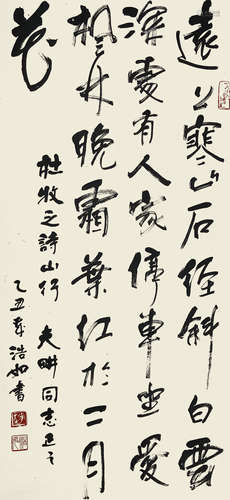 遠上寒山石徑斜白雲
深處有人家停車坐愛
楓林晚霜葉紅於二月
花
杜牧之詩山行 夫畊同志正之
乙丑春浩如書